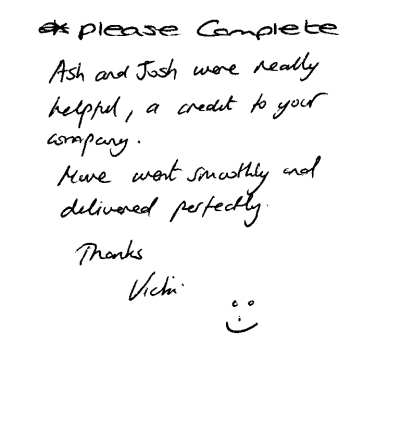 please Complete
Ash and Josh were really
helpful, a credit to your
company.
Move went smoothly and
delivered perfectly.
Thanks
Vicki